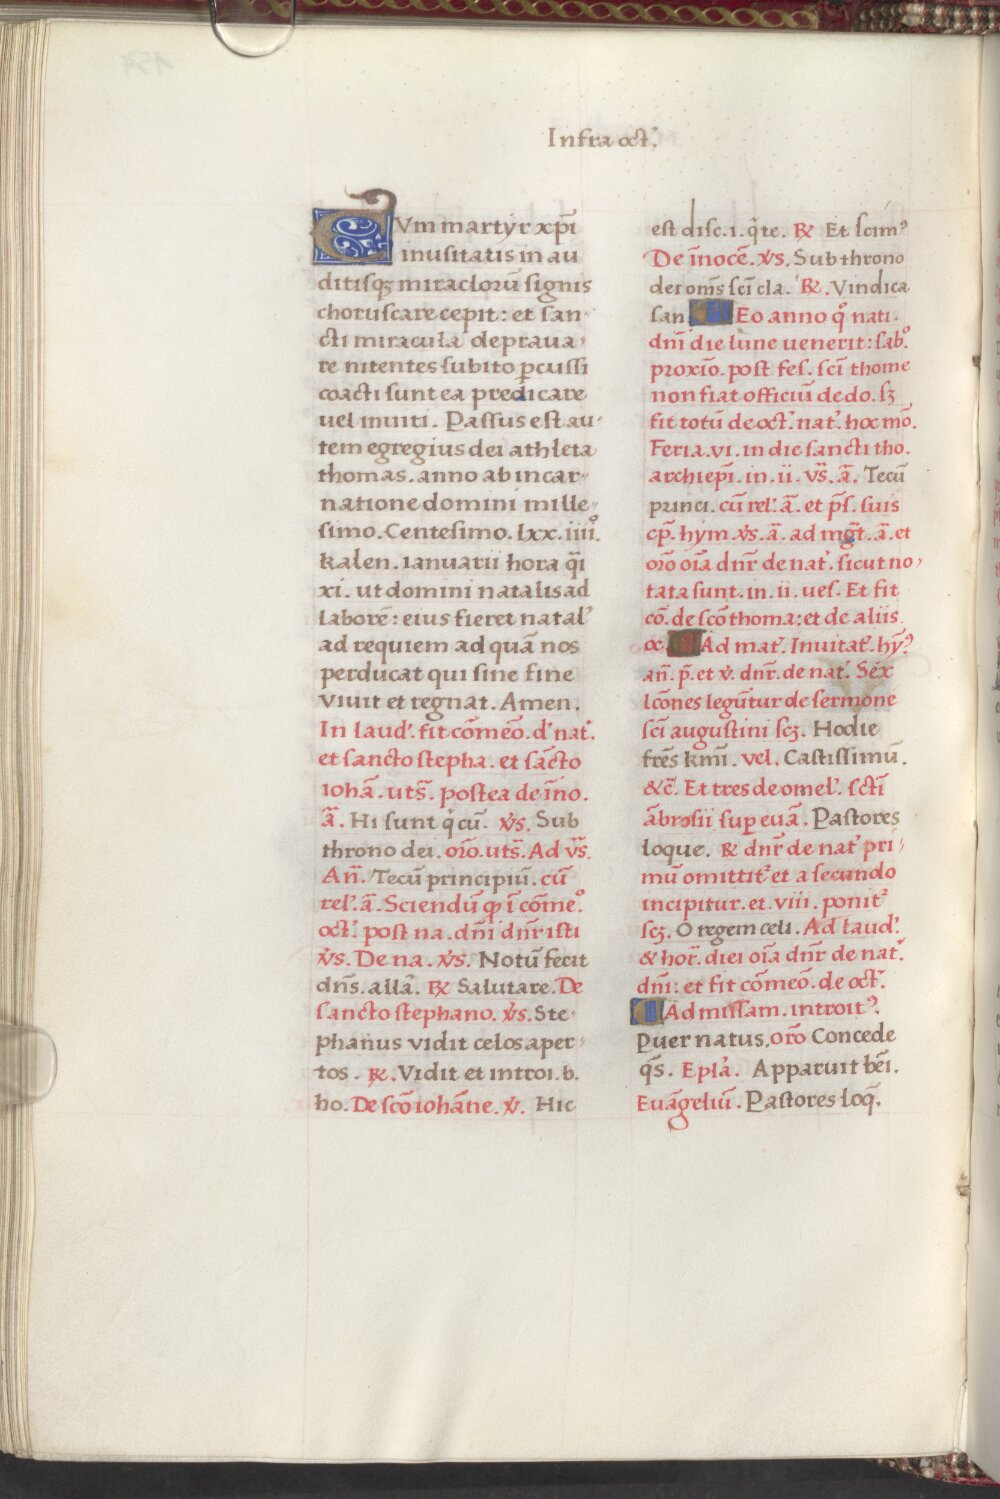 Infra oct᷒.
CVm martyr xp̄i
inusitatis in au
ditisqȝ miraclorū signis
choruscare cepit: et san-
cti miracula depraua-
re nitentes subito ꝑcussi
coacti sunt ea predicare
uel inuiti. Passus est au-
tem egregius dei athleta
thomas. anno ab incar-
natione domini mille-
simo. Centesimo. lxx. iiii°.
kalen. ianuarii hora q̄i
xi. ut domini natalis ad
laborē: eius fieret natal᷒
ad requiem ad quā nos
perducat qui sine fine
viuit et regnat. Amen.
In laud᷒. fit cōmeō. d᷒ nat᷒.
et sancto stepha. et sācto
iohā. uts̄. postea de īno.
ā. Hi sunt q̄ cū. ℣s. Sub
throno dei. orō. uts̄. Ad vs̄.
An̄. Tecū principiū. cū
rel᷒. ā. Sciendū ꝙ ī cōme°.
oct᷒. post na. dn̄i dn̄r isti
℣s. De na. ℣s. Notū fecit
dn̄s. allā. ℞ Salutare. De
sancto stephano. ℣s. Ste-
phanus vidit celos aper-
tos. ℞. Vidit et introi. b.
ho. De scō iohāne. ℣. Hic
est disc. i. q̄ te. ℞ Et scim᷒
De īnocē. ℣s. Sub throno
dei om̄s sc̄i cla. ℞. Vindica
san Eo anno q° nati.
dn̄i die lune uenerit: sab°.
proxīo. post fes. sc̄i thome
non fiat officiū de do. sȝ
fit totū de oct᷒. nat᷒. hoc mō.
Feria. vi. in die sancti tho.
archiepī. in. ii. vs̄. ā. Tecū
princi. cū rel᷒. ā. et p̄s. suis
cp̄. hym. ℣s. ā. ad mḡt. ā. et
orō oīa dn̄r de nat᷒. sicut no-
tata sunt. in. ii. ues. Et fit
cō. de scō thoma: et de aliis
oc. Ad mat᷒. Inuitat᷒. hȳ᷒
an̄. p̄. et ℣. dn̄r. de nat᷒. Sex
lcōnes legūtur de sermone
sc̄i augustini scȝ. Hodie
frēs km̄i. vel. Castissimū.
&c̄. Et tres de omel᷒. sctī
ābrosii sup euā. Pastores
loque. & dn̄r de nat᷒ pri-
mū omittit᷒ et a secundo
incipitur. et. viii. ponit᷒
scȝ. O regem celi. Ad laud᷒.
& hor̄. diei oīa dn̄r de nat᷒.
dn̄i: et fit cōmeō. de oct᷒.
Ad missam. introit᷒.
Puer natus. orō Concede
q̄s. Eplā. Apparuit bēi.
Euāgeliū. Pastores loq̄.